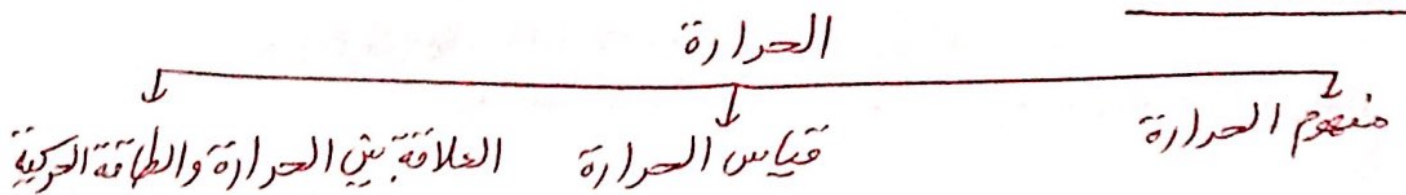 الحرارة
مفهوم الحرارة قياس الحرارة العلاقة بين الحرارة والطاقة الحركية